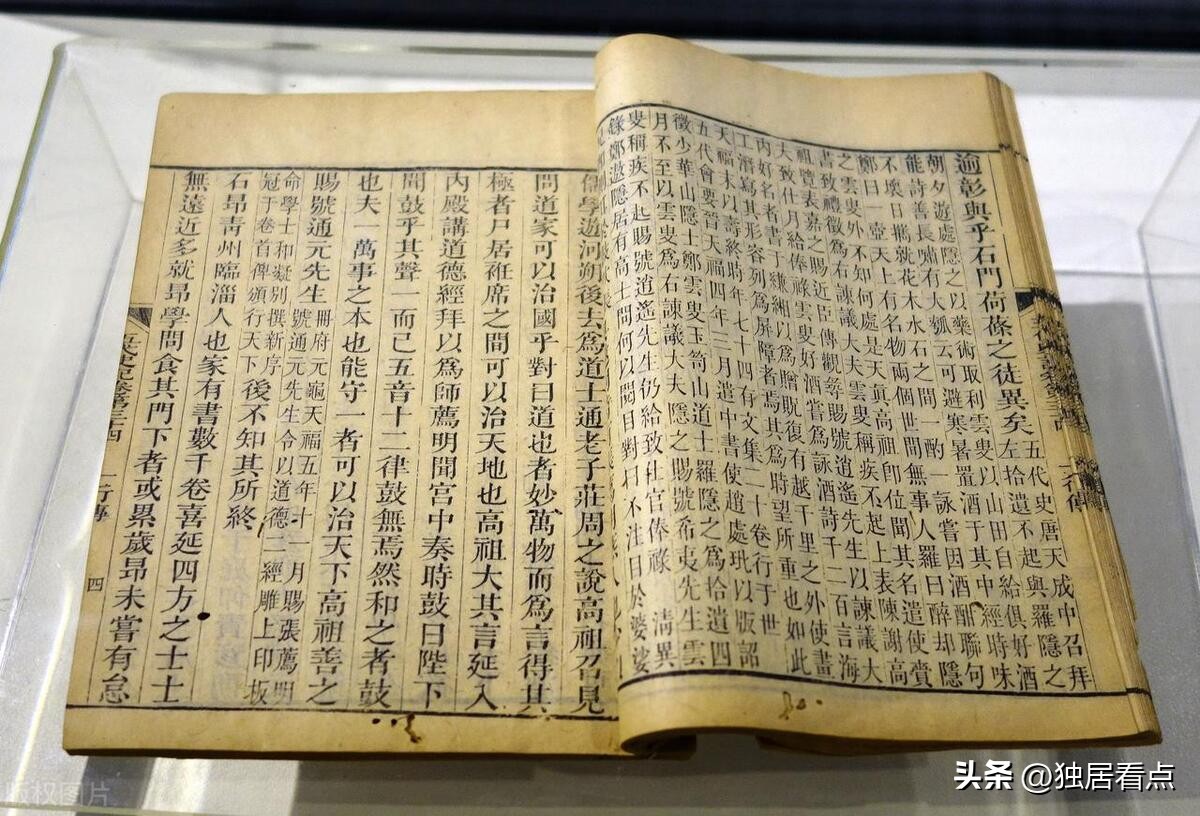 逾彰與乎石門荷蓧之徒異矣
五代史唐天成中召拜
左拾遺不起與羅隱之
朝夕遊處隱之以藥術取利雲叟以山田自給俱好酒
能詩善長嘯有大瓢云可避寒暑置酒于其中經時味
不壞日攜就花木水石之間一酌一詠嘗因酒酣聯句
鄭曰一壺天上有名物兩個世間無事人羅曰醉却隱
之雲叟外不知何處是天真高祖卽位聞其名遣使賫
書致禮徵為右諫議大夫雲叟稱疾不起上表陳謝高
祖覽表嘉之賜近臣傳觀尋賜號逍遙先生以諫議大
夫致仕月給俸祿雲叟好酒嘗為詠酒詩千二百言海
內好名者書于縑緗以為贈貺復有越千里之外使畫
工潛寫其形容列為屏障者焉其為時望所重也如此
天福末以壽終時年七十四有文集二十卷行于世
五代會要晉天福四年三月遣中書使趙處玭以版詔
徵少華山隱士鄭雲叟玉笥山道士羅隱之為拾遺四
月不至以雲叟為右諫議大夫隱之賜號希夷先生雲
叟稱疾不起賜號逍遙先生仍給致仕官俸祿 清異
錄鄭遨隱居有高士問何以閱目對曰不注目於婆娑
儒學遊河朔後去為道士通老子莊周之說高祖召見
問道家可以治國乎對曰道也者妙萬物而為言得其
極者尸居袵席之間可以治天地也高祖大其言延入
內殿講道德經拜以為師薦明聞宮中奏時鼓曰陛下
聞鼓乎其聲一而已五音十二律鼓無焉然和之者鼓
也夫一萬事之本也能守一者可以治天下高祖善之
賜號通元先生
冊府元龜天福五年十一月賜張薦明
號通元先生令以道德二經雕上印板
命學士和凝別撰新序
冠于卷首俾頒行天下
後不知其所終
石昂青州臨淄人也家有書數千卷喜延四方之士士
無遠近多就昂學問食其門下者或累歲昂未嘗有怠
四
头条 @独居看点
版权图片